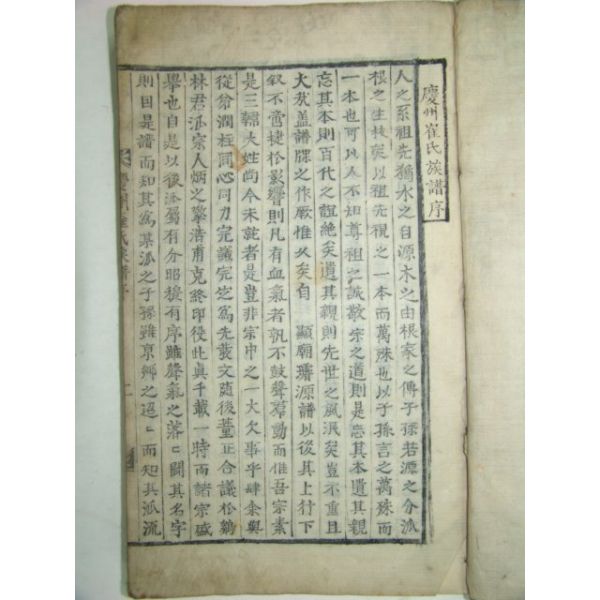 慶州崔氏族譜序
人之系祖先猶水之自源木之由根家之傳子孫若源之分派
根之生枝矣以祖先視之一本而萬殊也以子孫言之萬殊而
一本也可以人不知尊祖之誠敬宗之道則是忘其本遺其親
忘其本則百代之誼絶矣遺其親則先世之風泯矣豈不重且
大哉盖譜牒之作厥惟久矣自 顯廟璿源譜以後其上行下
效不啻捷於影響則凡有血氣者孰不鼓聲羣動而惟吾宗素
是三韓大姓尚今未就者是豈非宗中之一大欠事乎肆余與
從爺潤桓同心同力完議完定爲先裁文隨後董正合議於鷄
林君派宗人炳之擎浩甫克終印役此眞千載一時而諸宗盛
擧也自是以後派屬有分昭穆有序雖聲氣之落〻闊其名字
則因是譜而知其爲某派之子孫雖京鄕之迢〻而知其派流
慶州崔氏族譜序 一